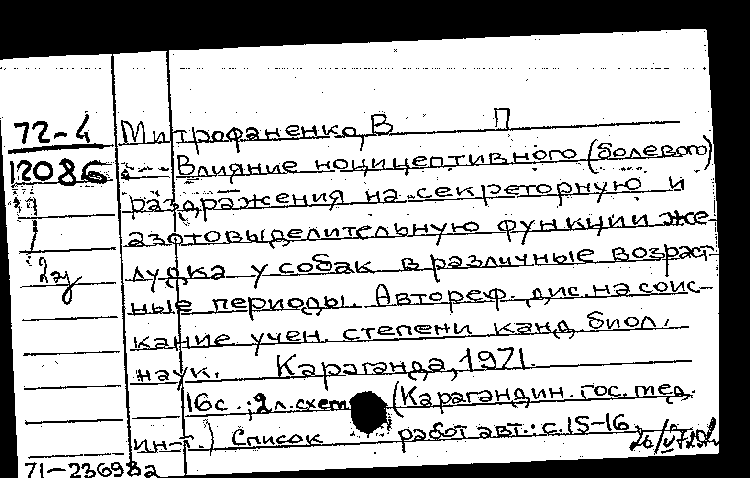 72-4 Митрофаненко, В П
12086 Влияние ноцицептивного (болевого)
раздражения на секреторную и
азотовыделительную функции же-
лудка у собак в различные возраст-
ные периоды. Автореф. дис. на соис-
кание учен. степени канд. биол.
наук. Караганда, 1971.
16с.; 2 л. схем (Карагандин. гос. мед.
ин-т.) Список работ авт.: с. 15-16.
71-236982а